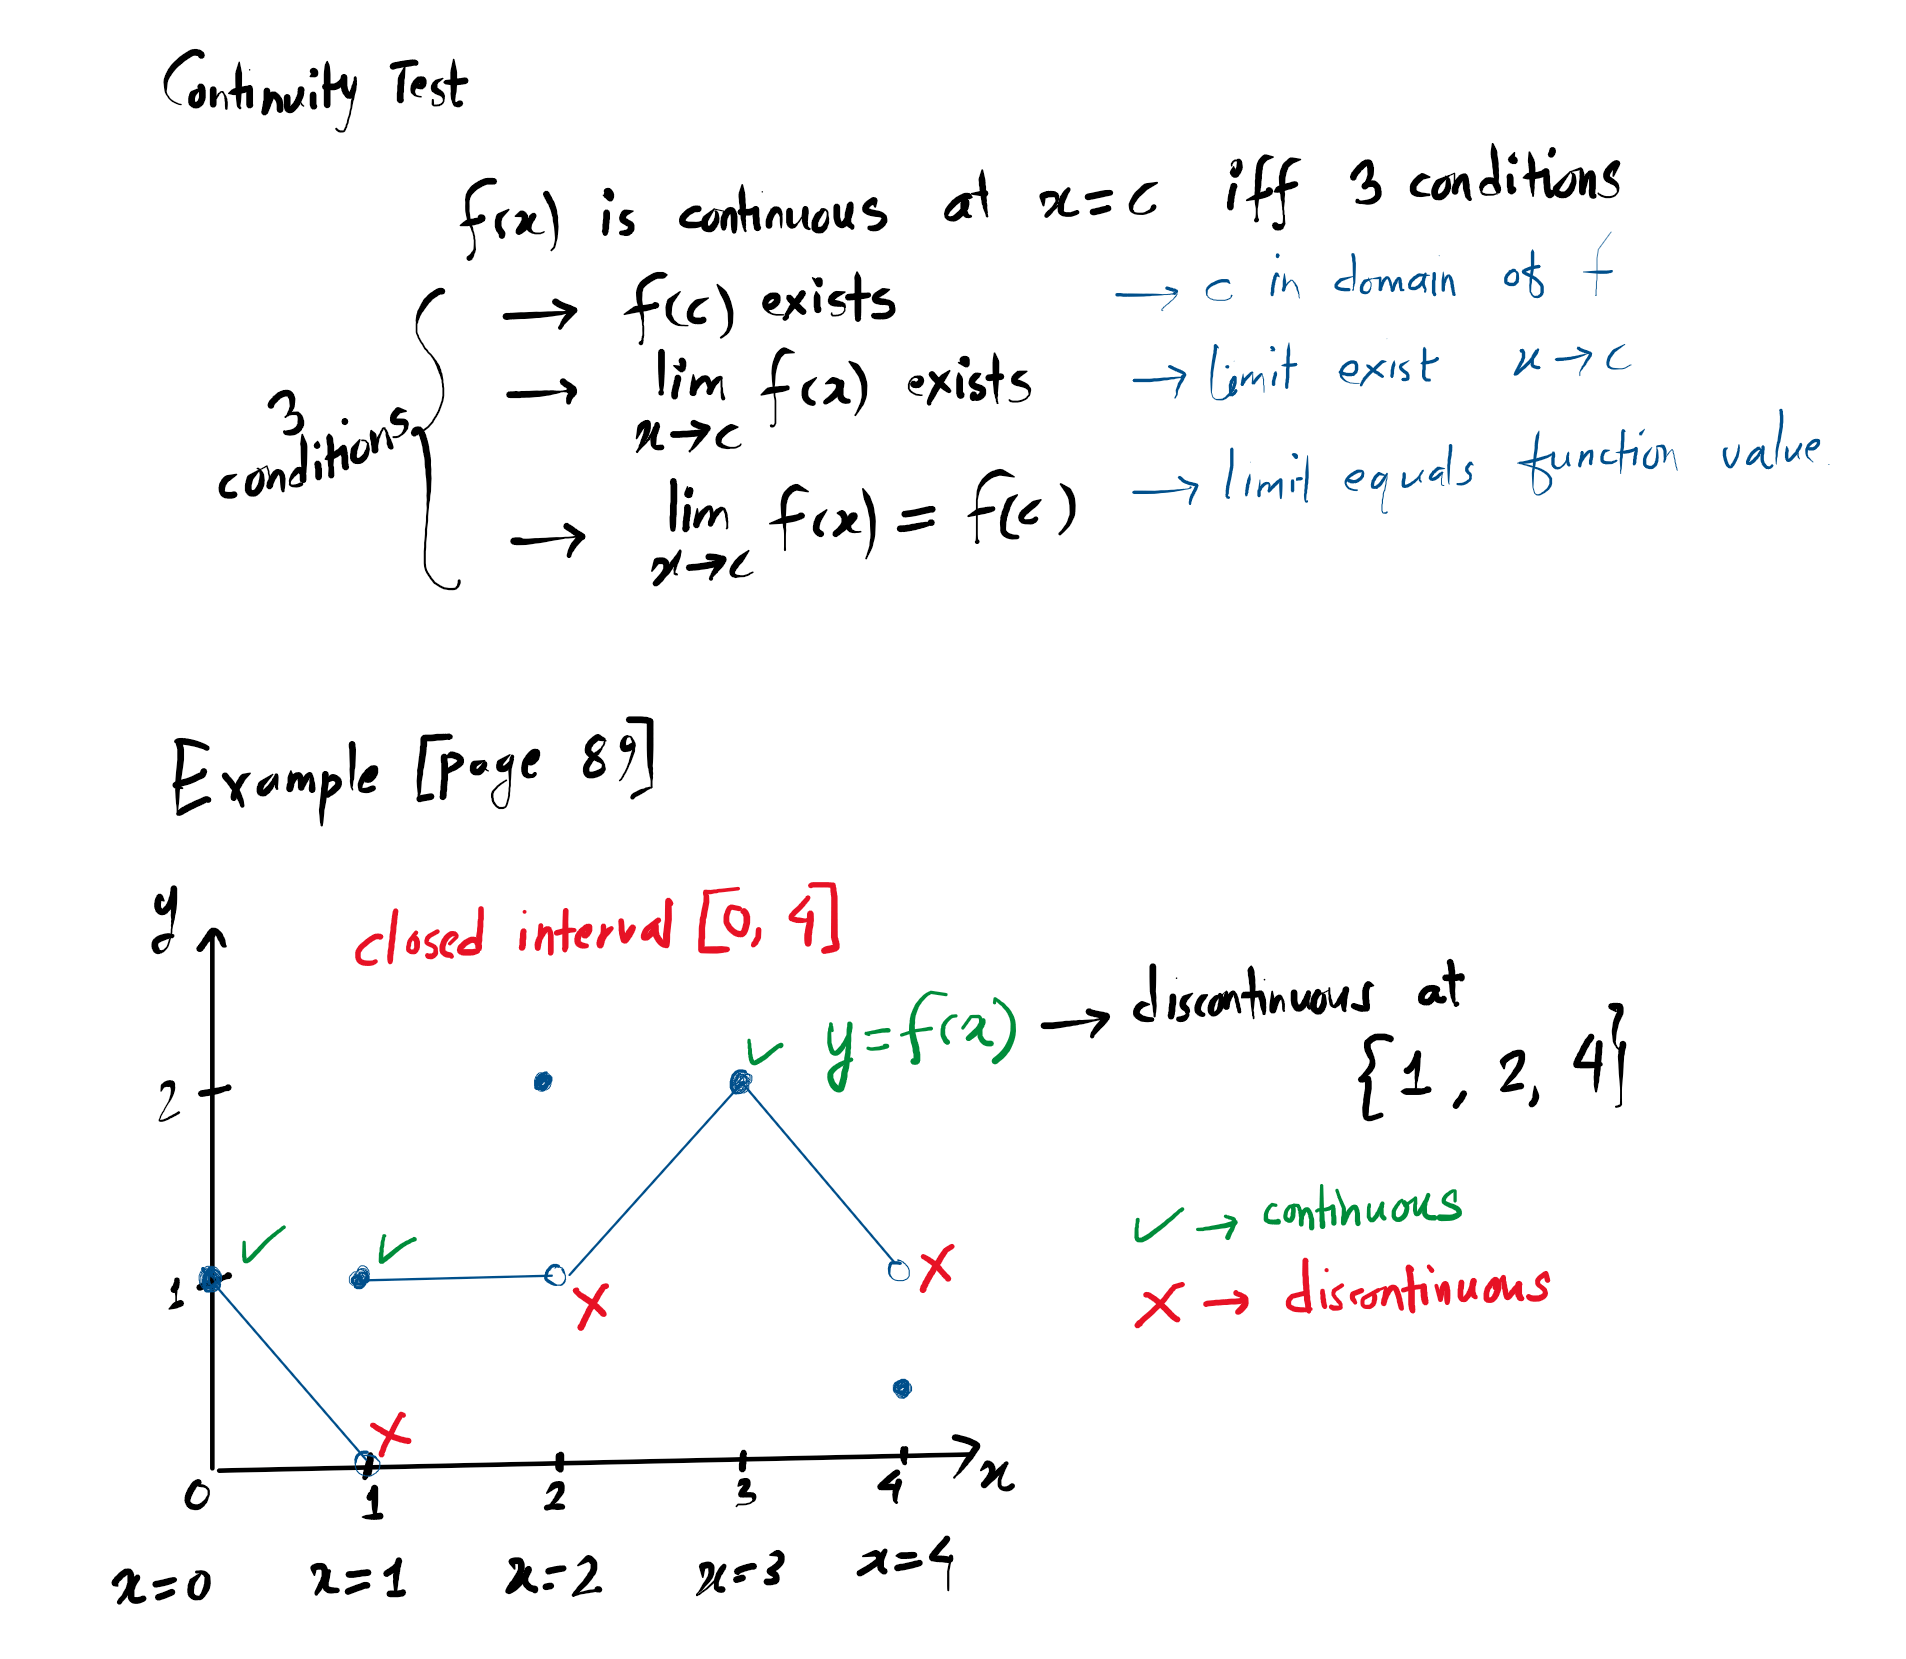 Continuity Test
f(x) is continuous at x=c iff 3 conditions
3 conditions
→ f(c) exists → c in domain of f
→ lim x→c f(x) exists → limit exist x→c
→ lim x→c f(x) = f(c) → limit equals function value
Example [page 89]
y
closed interval [0, 4]
✓ y=f(x) → discontinuous at
{1, 2, 4}
2
✓ → continuous
✓ ✓
1 x x
x → discontinuous
x
x
0 1 2 3 4
x=0 x=1 x=2 x=3 x=4